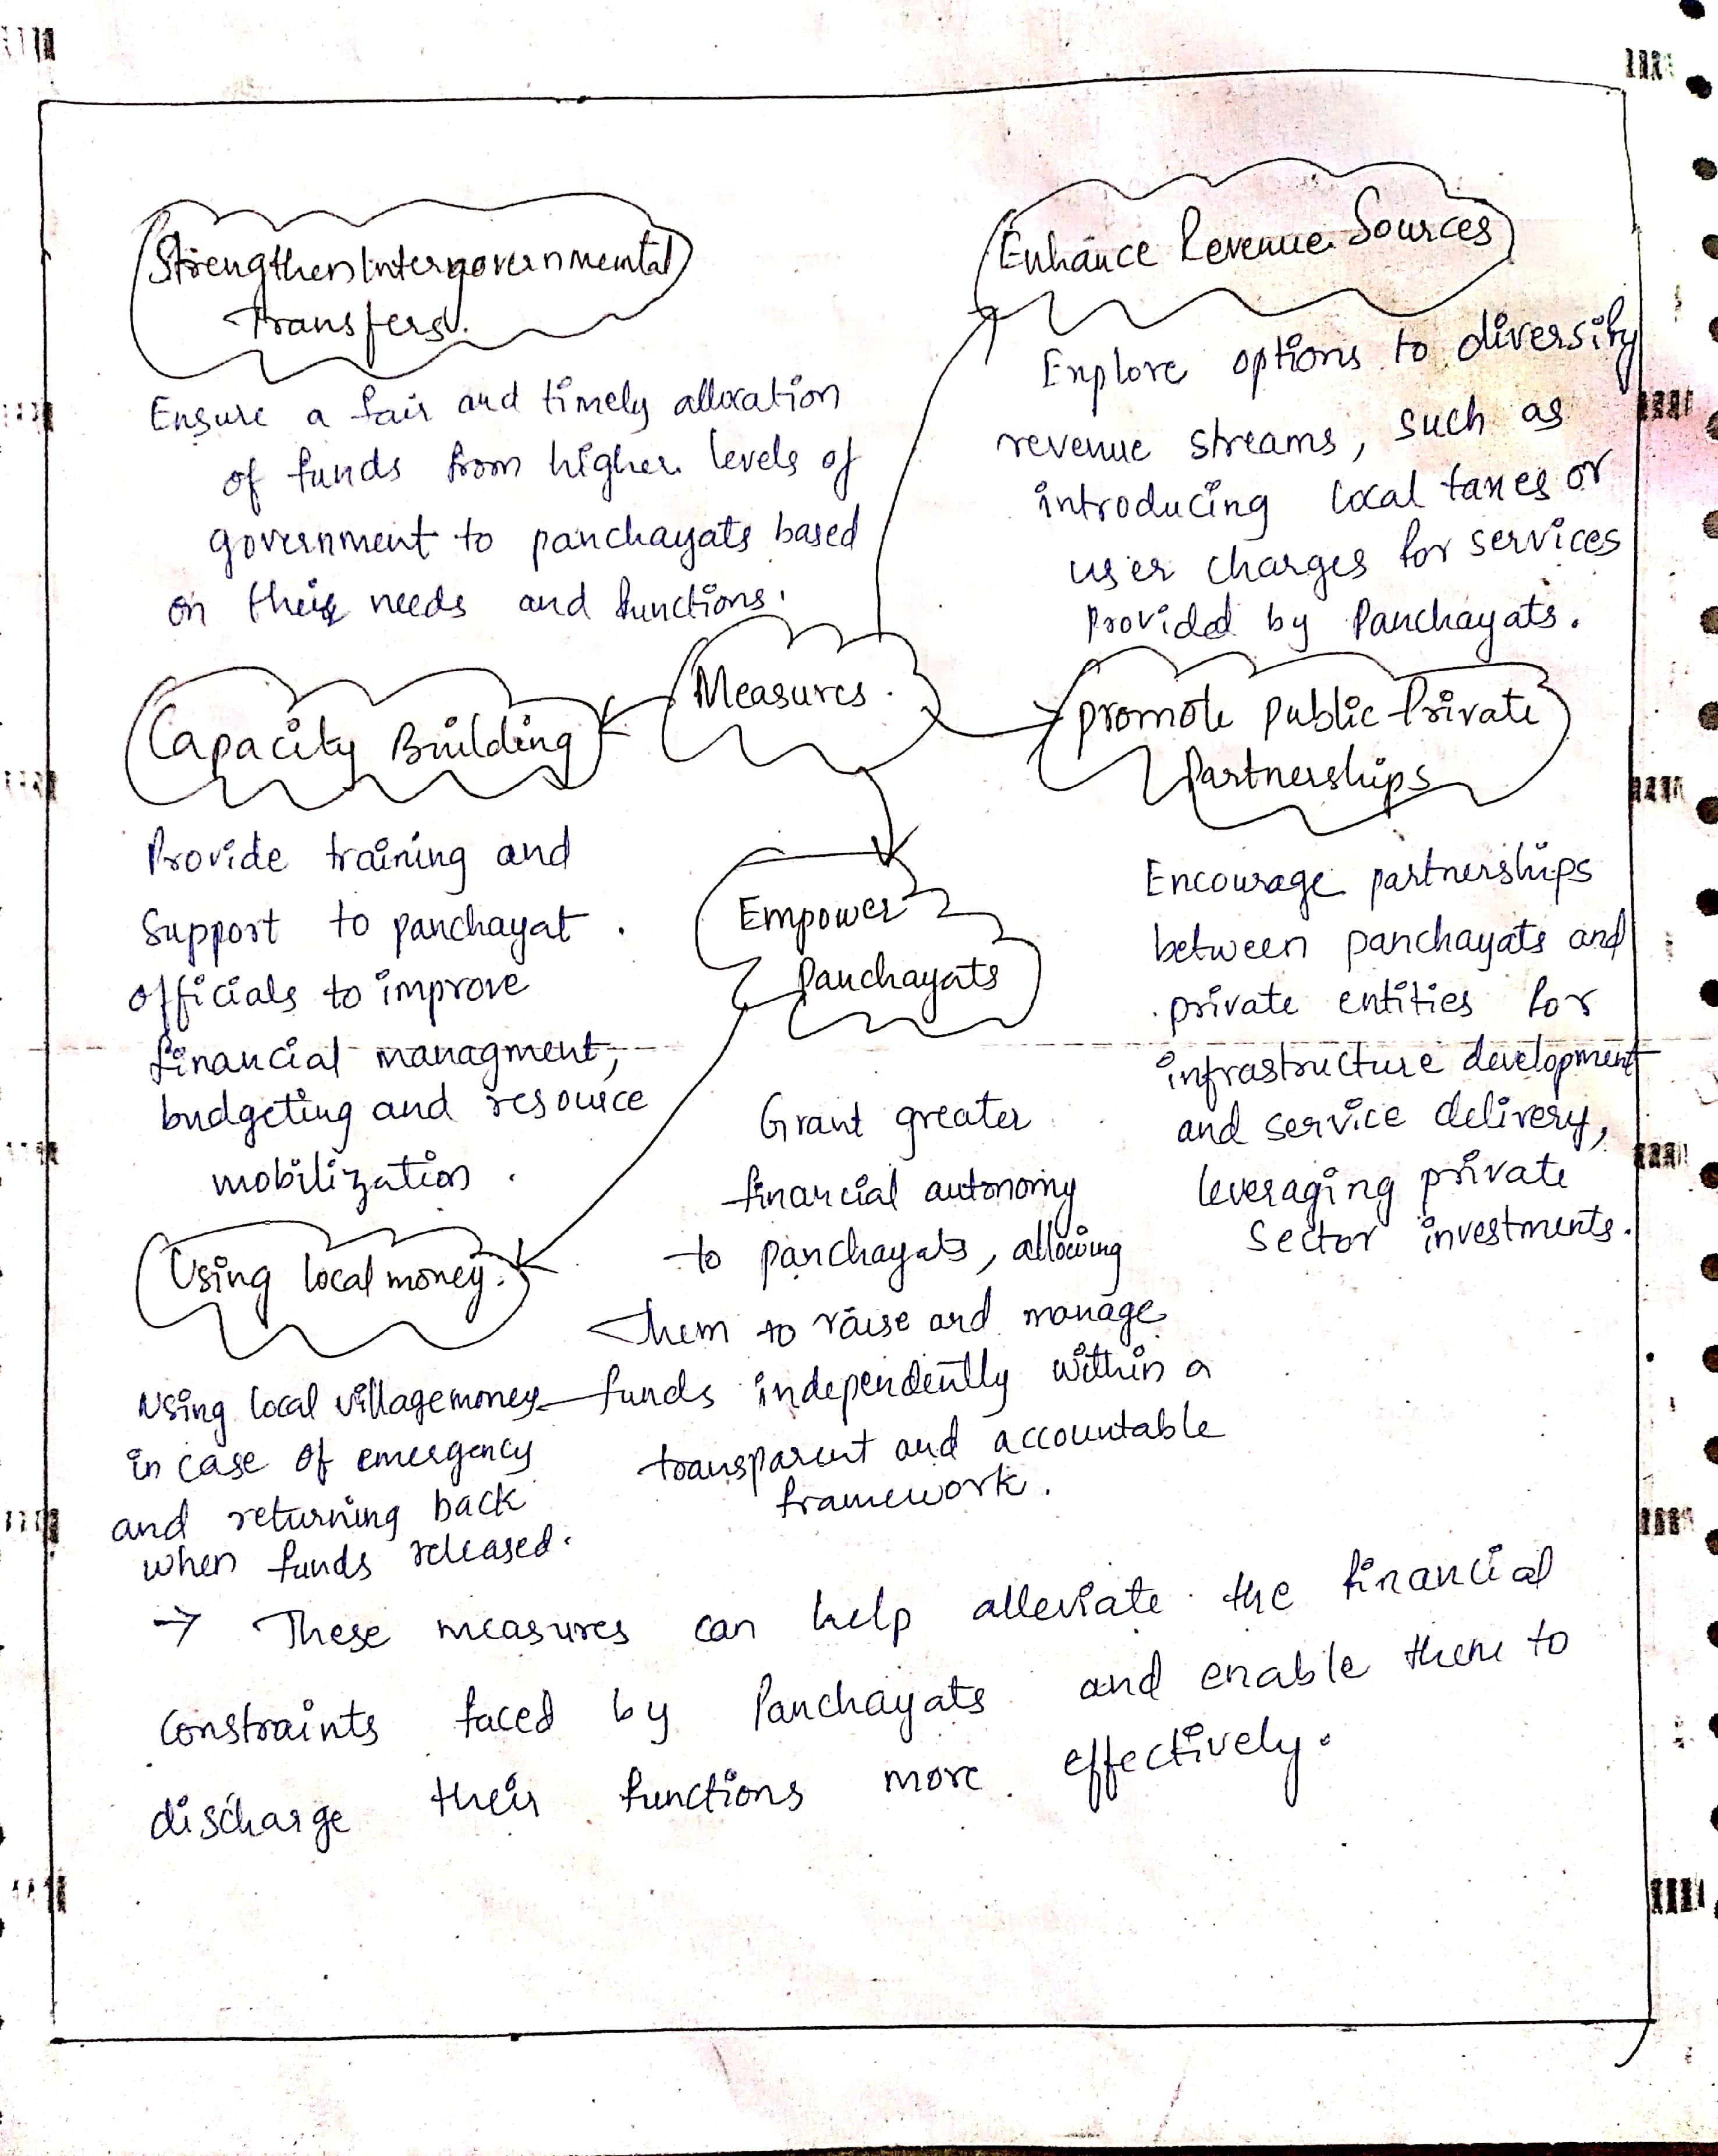 Strengthen Intergovernmental
Transfers.
Ensure a fair and timely allocation
of funds from higher levels of
government to panchayats based
on their needs and functions.
Enhance Revenue Sources
Explore options to diversify
revenue streams, such as
introducing local taxes or
user charges for services
provided by Panchayats.
Measures.
Capacity Building
Provide training and
Support to panchayat
officials to improve
financial managment,
budgeting and resource
mobilization.
promote public-Private
Partnerships
Encourage partnerships
between panchayats and
private entities for
infrastructure development
and service delivery,
leveraging private
Sector investments.
Empower
Panchayats
Grant greater
financial autonomy
to panchayats, allowing
them to raise and manage
funds independently within a
transparent and accountable
framework.
Using local money.
Using local village money
in case of emergency
and returning back
when funds released.
→ These measures can help alleviate the financial
constraints faced by Panchayats and enable them to
discharge their functions more effectively.